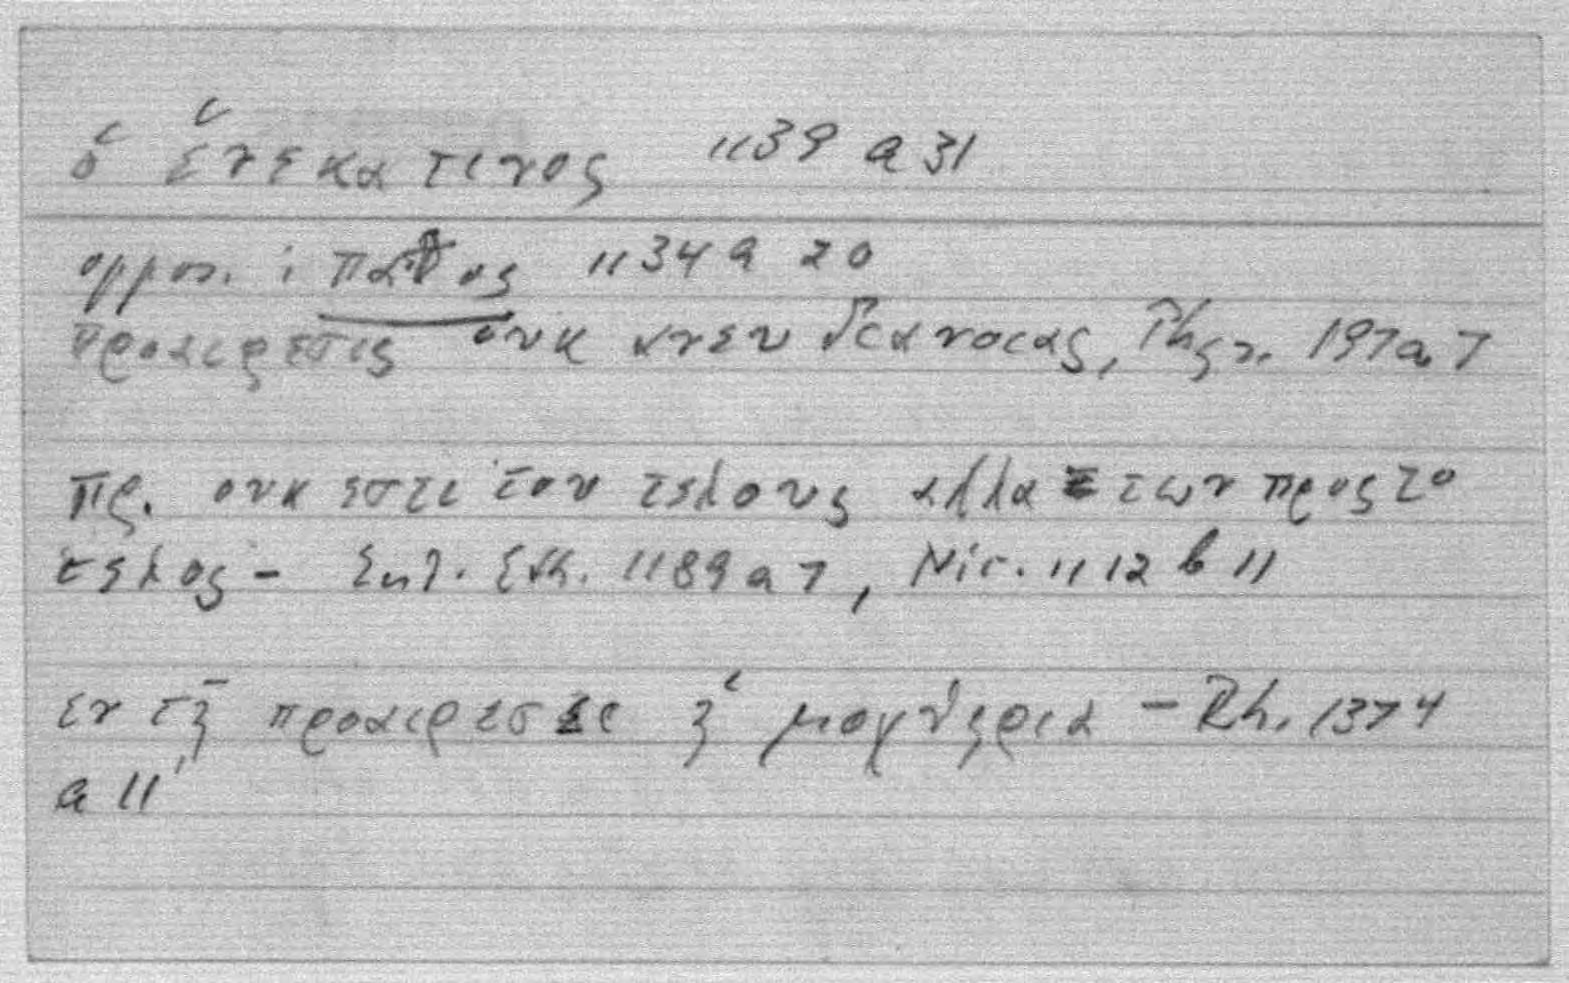 ὁ ἕνεκα τινος 1139 a 31
oppos. : παθος 1134 a 20
προαιρεσις ουκ ανευ διανοιας, Phys. 197a 7
πρ. ουκ εστι του τελους αλλα των προς το
τελος - Eud. Eth. 1189 a 7, Nic. 1112 b 11
εν τῃ προαιρεσει ἡ μοχθηρια - Rh. 1374
a 11